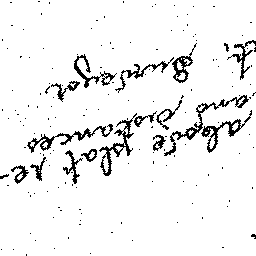 above plat re-
and distances
d, Surveyor